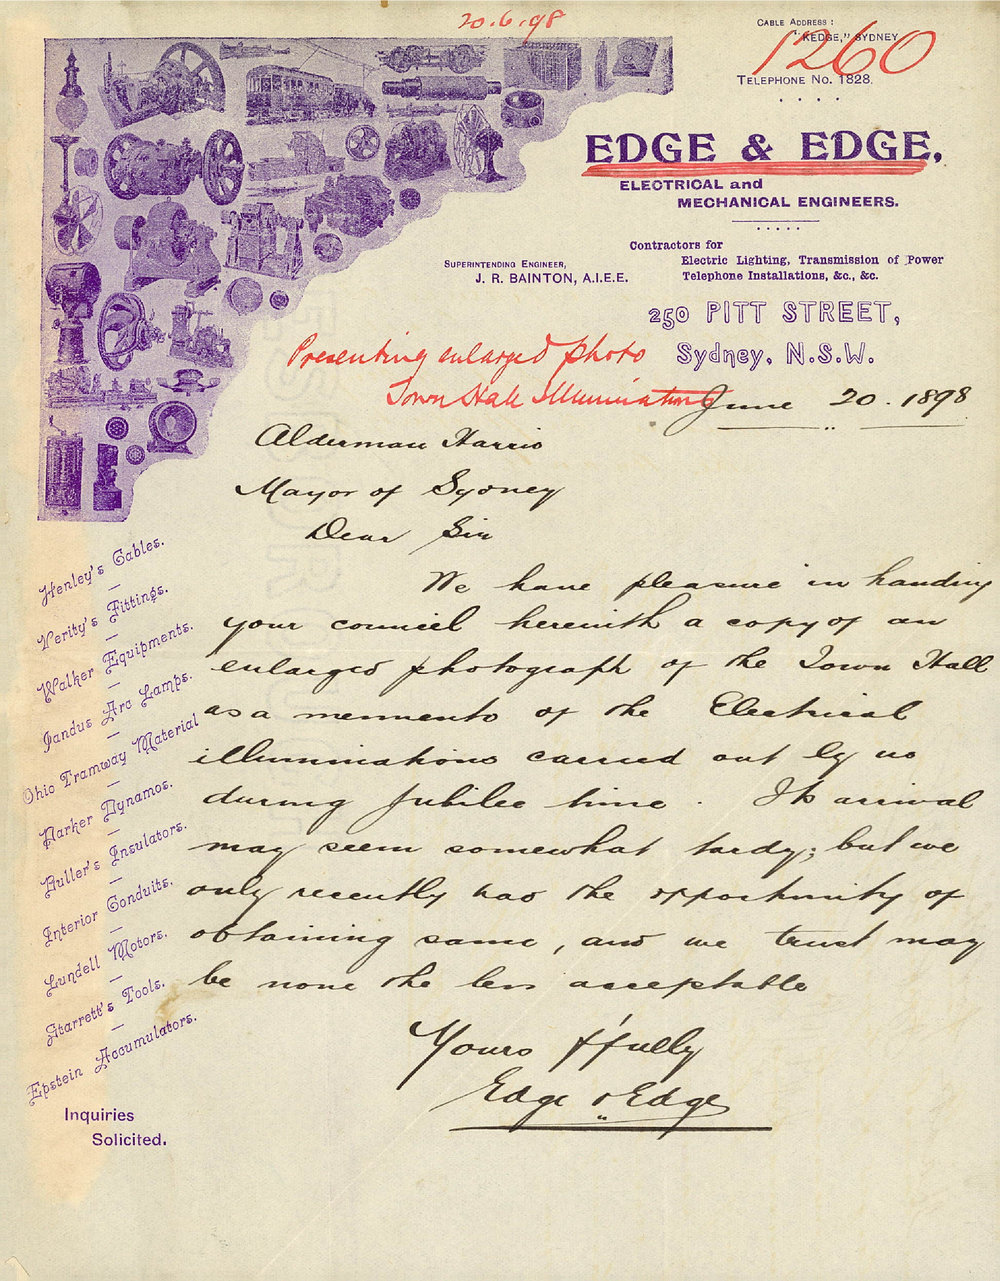 20.6.98
CABLE ADDRESS:
"KEDGE," SYDNEY
1260
TELEPHONE NO. 1828.
EDGE & EDGE,
ELECTRICAL and
MECHANICAL ENGINEERS.
Contractors for
Electric Lighting, Transmission of Power
Telephone Installations, &c., &c.
SUPERINTENDING ENGINEER,
J. R. BAINTON, A.I.E.E.
250 PITT STREET,
Sydney, N.S.W.
Presenting enlarged photo
Town Hall Illuminations
June 20. 1898
Alderman Harris
Mayor of Sydney
Dear Sir
We have pleasure in handing
your council herewith a copy of an
enlarged photograph of the Town Hall
as a memento of the Electrical
illuminations carried out by us
during Jubilee time. Its arrival
may seem somewhat tardy; but we
only recently had the opportunity of
obtaining same, and we trust may
be none the less acceptable
Yours f'fully
Edge & Edge
Henley's Cables.
Verity's Fittings.
Walker Equipments.
Jandus Arc Lamps.
Ohio Tramway Material
Parker Dynamos.
Buller's Insulators.
Interior Conduits.
Lundell Motors.
Starrett's Tools.
Epstein Accumulators.
Inquiries
Solicited.